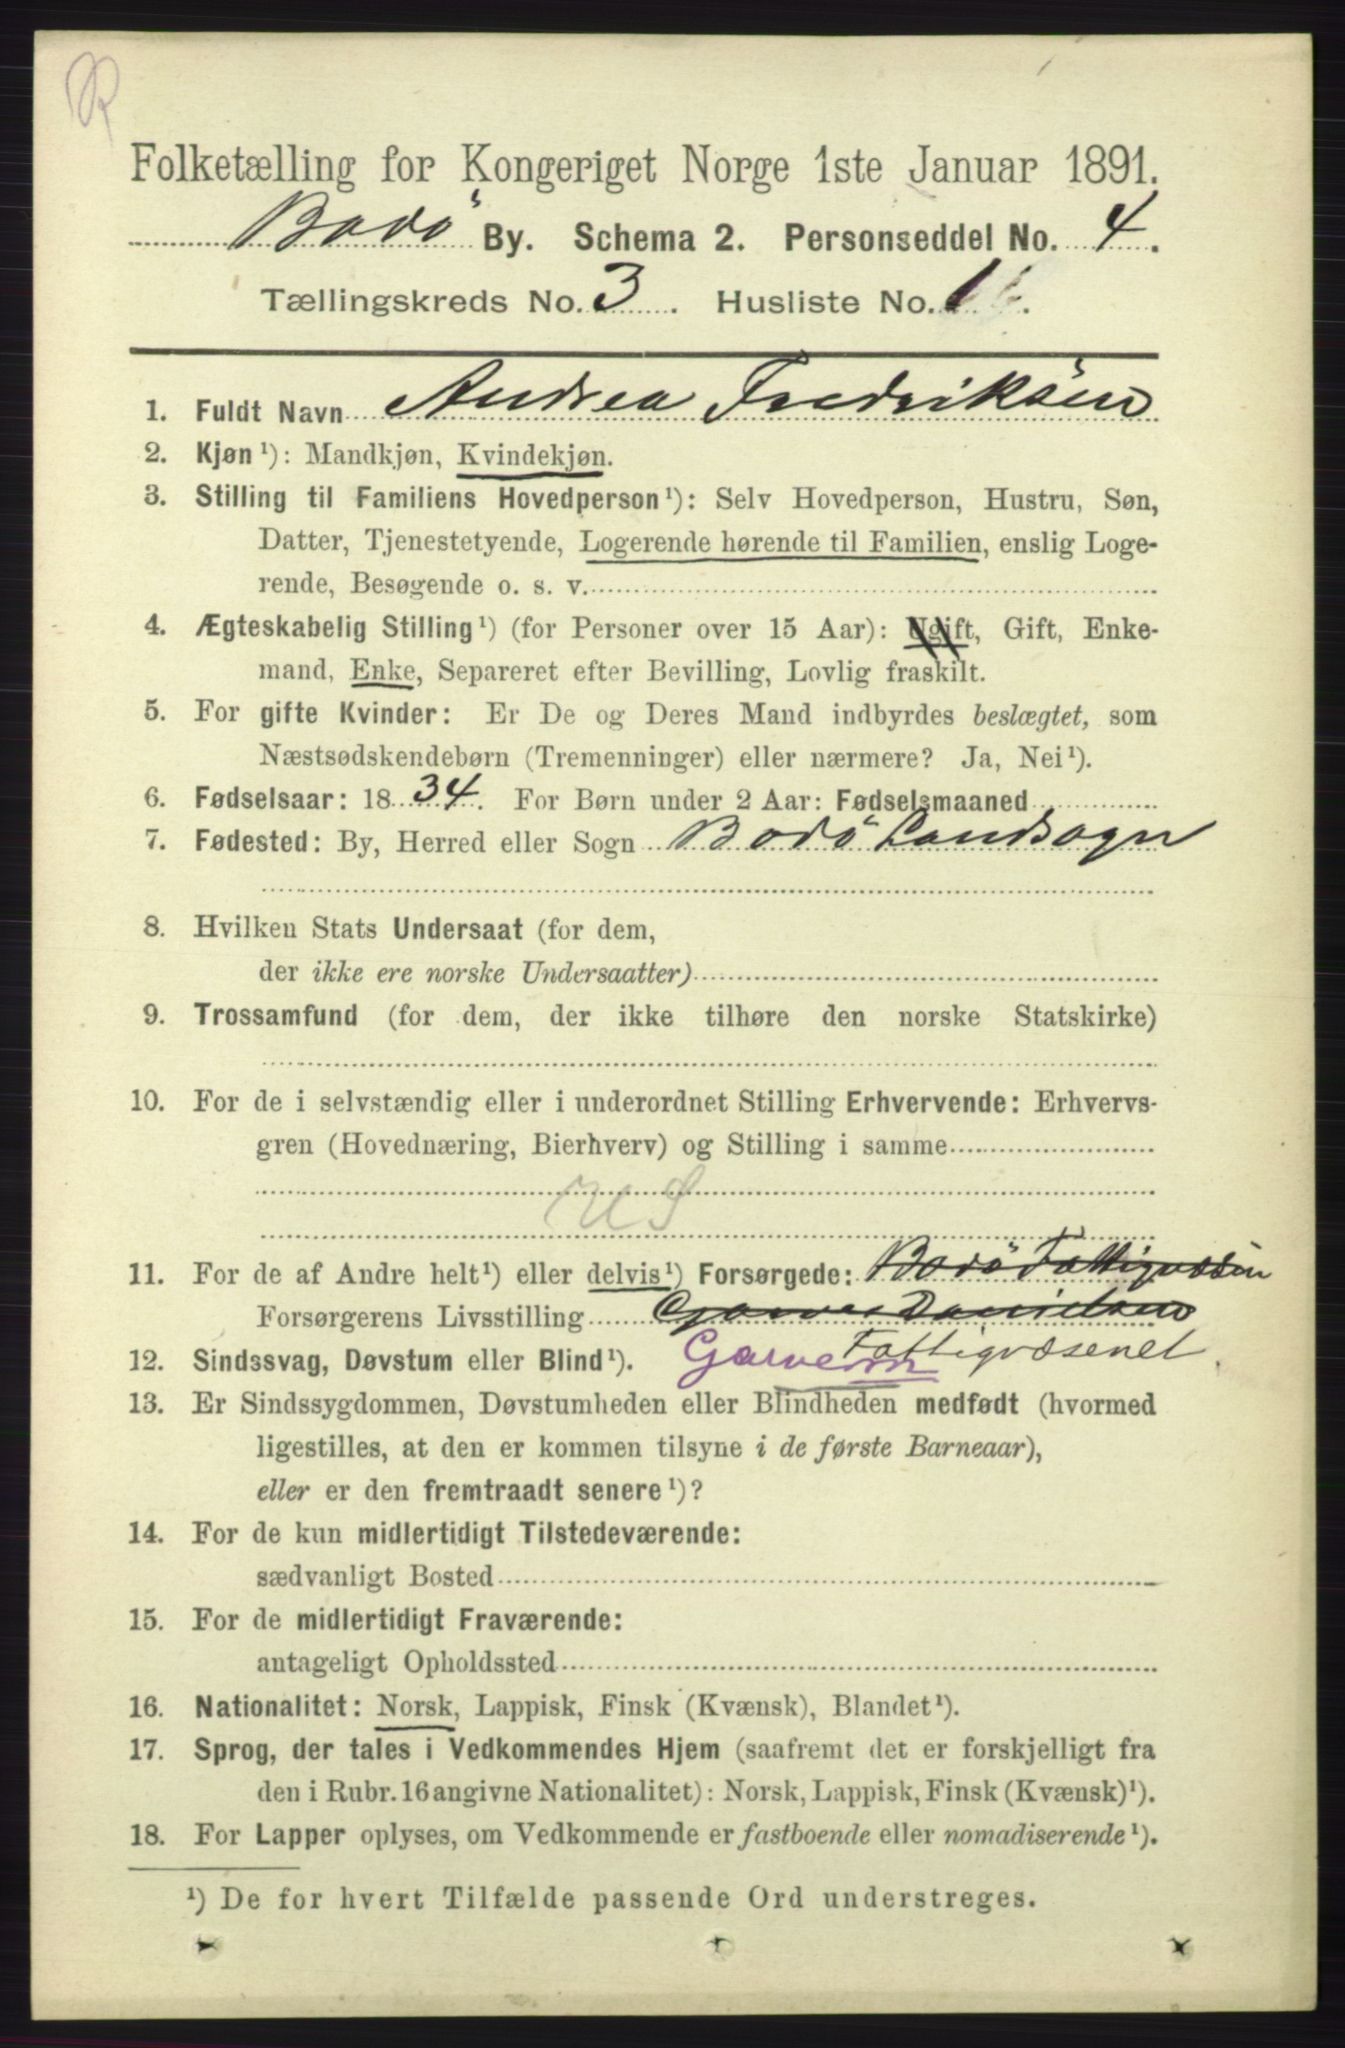 Folketælling for Kongeriget Norge 1ste Januar 1891.
Bodö By. Schema 2. Personseddel No. 4.
Tællingskreds No. 3. Husliste No. 1.
1. Fuldt Navn Andrea Fredriksen
2. Kjøn¹): Mandkjøn, Kvindekjøn.
3. Stilling til Familiens Hovedperson¹): Selv Hovedperson, Hustru, Søn,
Datter, Tjenestetyende, Logerende hørende til Familien, enslig Loge-
rende, Besøgende o. s. v.
4. Ægteskabelig Stilling¹) (for Personer over 15 Aar): Ugift, Gift, Enke-
mand, Enke, Separeret efter Bevilling, Lovlig fraskilt.
5. For gifte Kvinder: Er De og Deres Mand indbyrdes beslægtet, som
Næstsødskendebørn (Tremenninger) eller nærmere? Ja, Nei¹).
6. Fødselsaar: 1834. For Børn under 2 Aar: Fødselsmaaned
7. Fødested: By, Herred eller Sogn Bodö Landsogn
8. Hvilken Stats Undersaat (for dem,
der ikke ere norske Undersaatter)
9. Trossamfund (for dem, der ikke tilhøre den norske Statskirke)
10. For de i selvstændig eller i underordnet Stilling Erhvervende: Erhvervs-
gren (Hovednæring, Bierhverv) og Stilling i samme
US
11. For de af Andre helt¹) eller delvis¹) Forsørgede: Bodö
Forsørgerens Livsstilling Garver Danielsen
12. Sindssvag, Døvstum eller Blind¹). Garverm Fattigvæsenet
13. Er Sindssygdommen, Døvstumheden eller Blindheden medfødt (hvormed
ligestilles, at den er kommen tilsyne i de første Barneaar),
eller er den fremtraadt senere¹)?
14. For de kun midlertidigt Tilstedeværende:
sædvanligt Bosted
15. For de midlertidigt Fraværende:
antageligt Opholdssted
16. Nationalitet: Norsk, Lappisk, Finsk (Kvænsk), Blandet¹).
17. Sprog, der tales i Vedkommendes Hjem (saafremt det er forskjelligt fra
den i Rubr. 16 angivne Nationalitet): Norsk, Lappisk, Finsk (Kvænsk)¹).
18. For Lapper oplyses, om Vedkommende er fastboende eller nomadiserende¹).
¹) De for hvert Tilfælde passende Ord understreges.